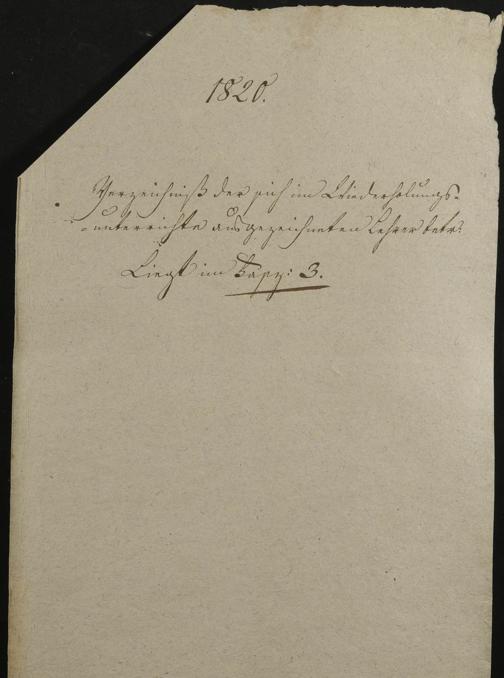 1820.
Verzeichniß der sich im Wiederholungs-
-unterrichte ausgezeichneten Lehrer betr:
Liegt im Fasz: 3.